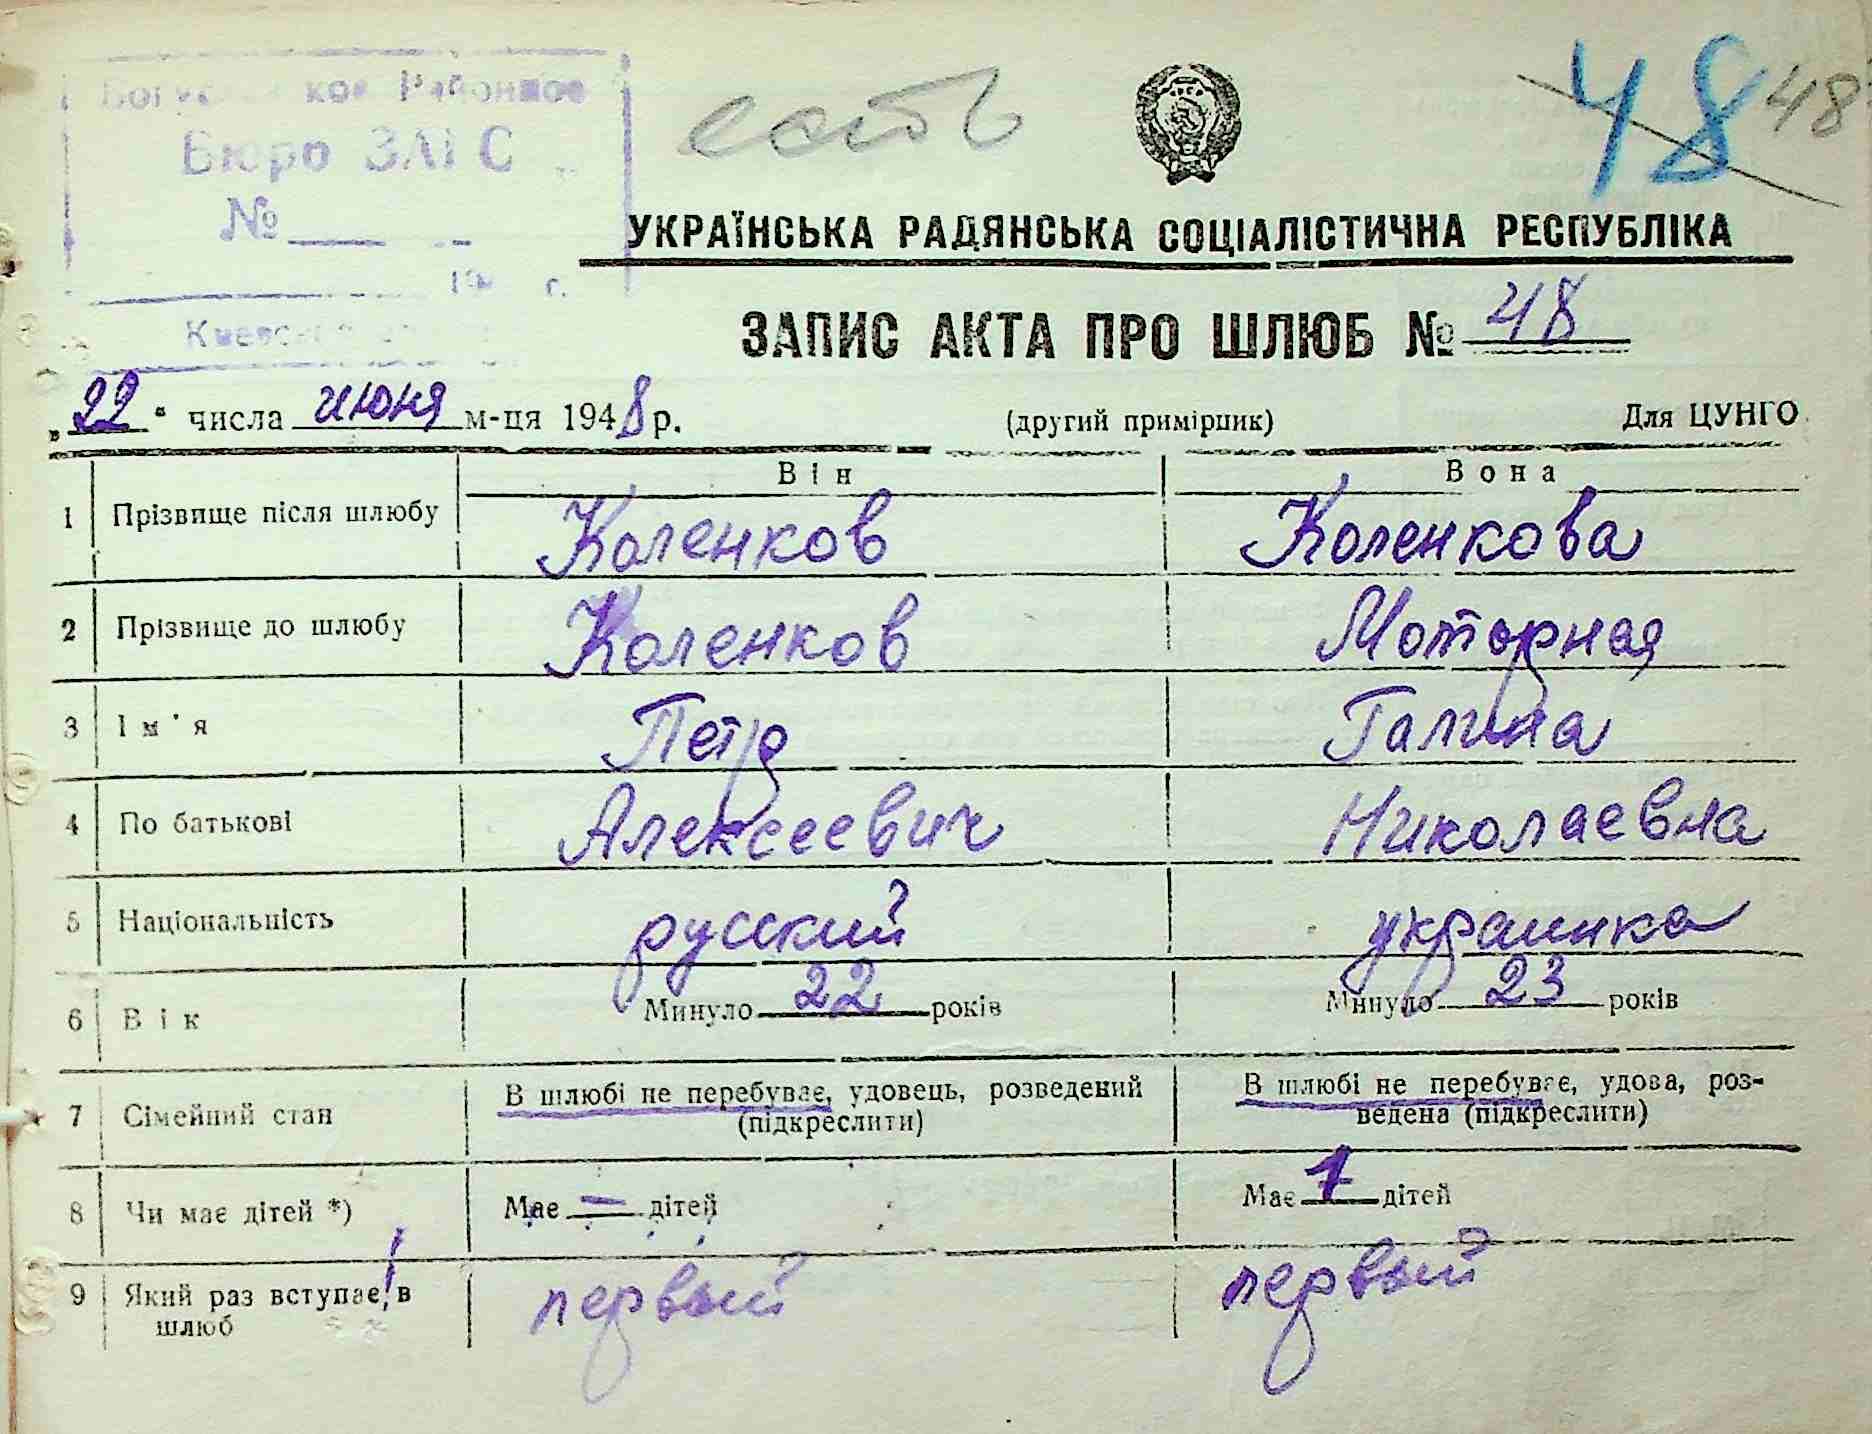 Районное
Бюро ЗАГС
№
г.
есть
48 48
УКРАЇНСЬКА РАДЯНСЬКА СОЦІАЛІСТИЧНА РЕСПУБЛІКА
ЗАПИС АКТА ПРО ШЛЮБ № 48
„22“ числа июня м-ця 1948 р. (другий примірник) Для ЦУНГО
Він Вона
1 Прізвище після шлюбу Коленков Коленкова
2 Прізвище до шлюбу Коленков Моторная
3 Ім'я Петр Галина
4 По батькові Алексеевич Николаевна
5 Національність русский украинка
6 Вік Минуло 22 років Минуло 23 років
7 Сімейний стан В шлюбі не перебуває, удовець, розведений В шлюбі не перебуває, удова, роз-
(підкреслити) ведена (підкреслити)
8 Чи має дітей *) Має — дітей Має 1 дітей
9 Який раз вступає в первый первый
шлюб